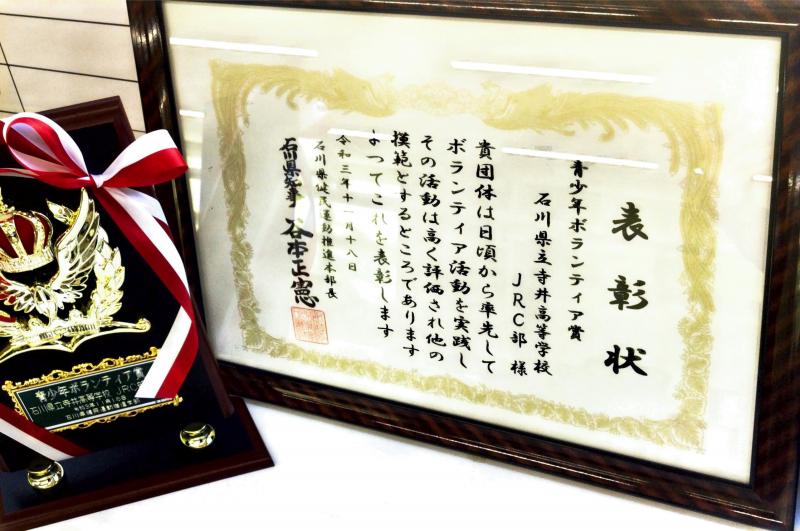 表彰状
青少年ボランティア賞
石川県立寺井高等学校
JRC部 様
貴団体は日頃から率先して
ボランティア活動を実践し
その活動は高く評価され他の
模範とするところであります
よってこれを表彰します
令和三年十一月十八日
石川県健民運動推進本部長
石川県知事 谷本正憲
青少年ボランティア賞
石川県立寺井高等学校 JRC部